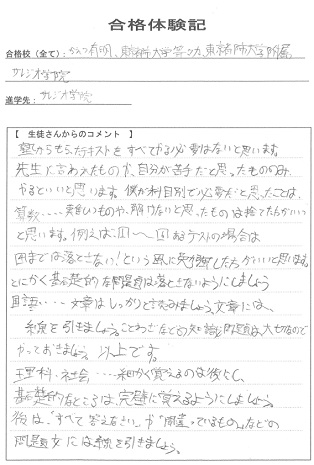 合格体験記
合格校（全て）：かえつ有明、東京都市大学等々力、東京都市大学付属
サレジオ学院
進学先：サレジオ学院
【 生徒さんからのコメント 】
塾からもらったテキストをすべてやる必要はないと思います。
先生に言われたものや、自分が苦手だと思ったもののみ、
やるといいと思います。僕が科目別で必要だと思ったことは、
算数‥‥難しいものや、解けないと思ったものは捨てた方がいい
と思います。例えば、 あるテストの場合は
までは落とさない！という風に勉強した方がいいと思います。
とにかく基礎的な問題は落とさないようにしましょう
国語‥‥文章はしっかりと読みましょう。文章には、
線を引きましょう。ことわざなどの知識問題は大切なので
やっておきましょう。以上です。
理科、社会‥‥細かく覚えるのは後にし、
基礎的なところは、完璧に覚えるようにしましょう。
後は、「すべて答えなさい」や「間違っているもの」などの
問題文には線を引きましょう。